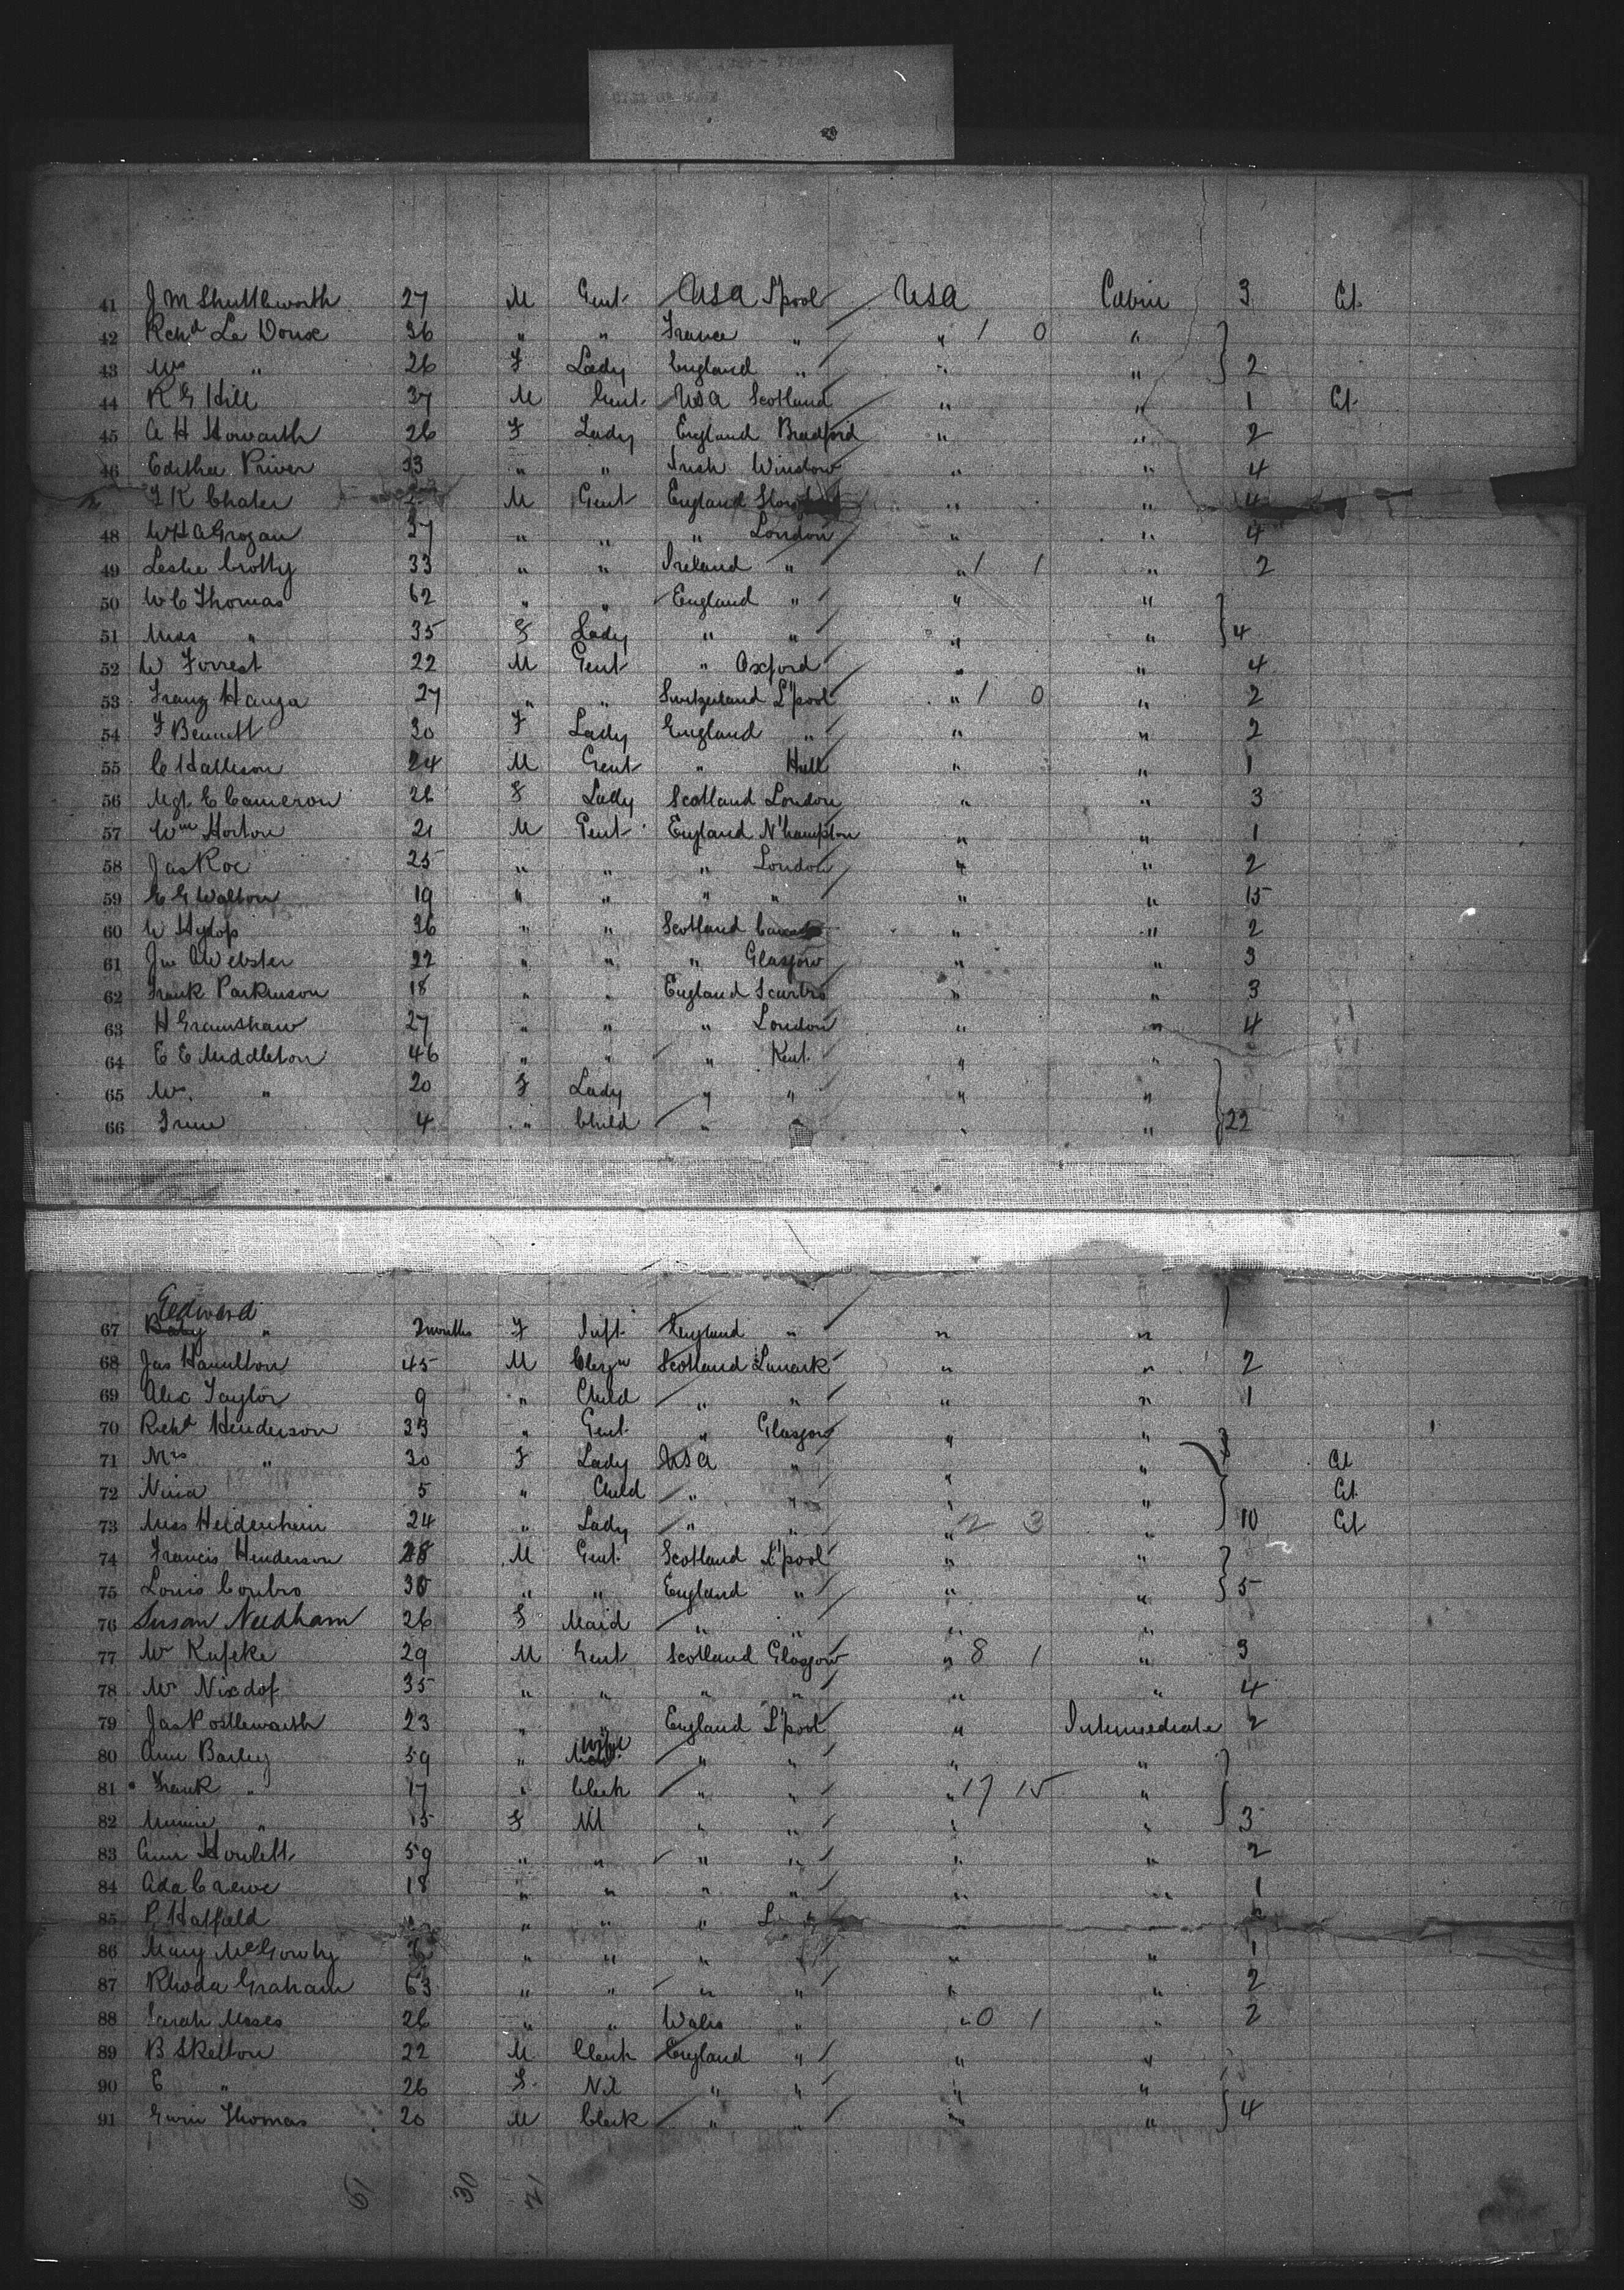 41 J M Shuttleworth 27 M Gent USA L'pool USA Cabin 3 Cit.
42 Rchd Le Doux 36 " " France " " 1 0 "
43 Mrs " 26 F Lady England " " " 2
44 R G Hill 37 M Gent USA Scotland " " 1 Cit.
45 A H Howarth 26 F Lady England Bradford " " 2
46 Editha Priver 33 " " Irish Winslow " " 4
F K Chater M Gent England " " 4
48 W H A Grogan 37 " " " London " " 4
49 Leslie Crotty 33 " " Ireland " " 1 1 " 2
50 W C Thomas 62 " " England " " "
51 Miss " 35 F Lady " " " " 4
52 W Forrest 22 M Gent " Oxford " " 4
53 Franz Hanga 27 " " Switzerland L'pool " 1 0 " 2
54 F Bennett 30 F Lady England " " " 2
55 C Hallison 24 M Gent " Hull " " 1
56 Mgt C Cameron 26 F Lady Scotland London " " 3
57 Wm Horton 21 M Gent England N'hampton " " 1
58 Jas Roe 25 " " " London " " 2
59 E G Walton 19 " " " " " " 15
60 W Hyslop 36 " " Scotland " " 2
61 Jno A Webster 22 " " " Glasgow " " 3
62 Frank Parkinson 18 " " England Scarbro " " 3
63 H Gramshaw 27 " " " London " " 4
64 E E Middleton 46 " " " Kent " "
65 Mrs. " 20 F Lady " " " "
66 Irene 4 " Child " " " " 22
Edward
67 Baby " 2 months F Inft. England " " "
68 Jas Hamilton 45 M Clergn Scotland Lanark " " 2
69 Alex Taylor 9 " Child " " " " 1
70 Rchd Henderson 33 " Gent. " Glasgow " "
71 Mrs " 30 F Lady USA " " " Cit
72 Nina 5 " Child " " " " Cit.
73 Miss Heidenheim 24 " Lady " " " 2 3 " 10 Cit
74 Francis Henderson 28 M Gent. Scotland L'pool " "
75 Louis Coubro 30 " " England " " " 5
76 Susan Needham 26 F Maid " " " "
77 Mr Kufeke 29 M Gent Scotland Glasgow " 8 1 " 3
78 Mr Nixdof 35 " " " " " " 4
79 Jas Postlewaith 23 " " England L'pool " Intermediate 2
80 Ann Barley 59 " wife " " " "
81 Frank " 17 " Clerk " " " 17 15 "
82 Minnie " 15 F Nil " " " " 3
83 Ann Howlett 59 " " " " " " 2
84 Ada Crewe 18 " " " " " " 1
85 P Hatfield " " "
86 Mary McGowby " " " " " " 1
87 Rhoda Graham 63 " " " " " " 2
88 Sarah Moses 26 " " Wales " " 0 1 " 2
89 B Skelton 22 M Clerk England " " "
90 E " 26 F Nil " " " "
91 Erwin Thomas 20 M Clerk " " " " 4
61 30 21